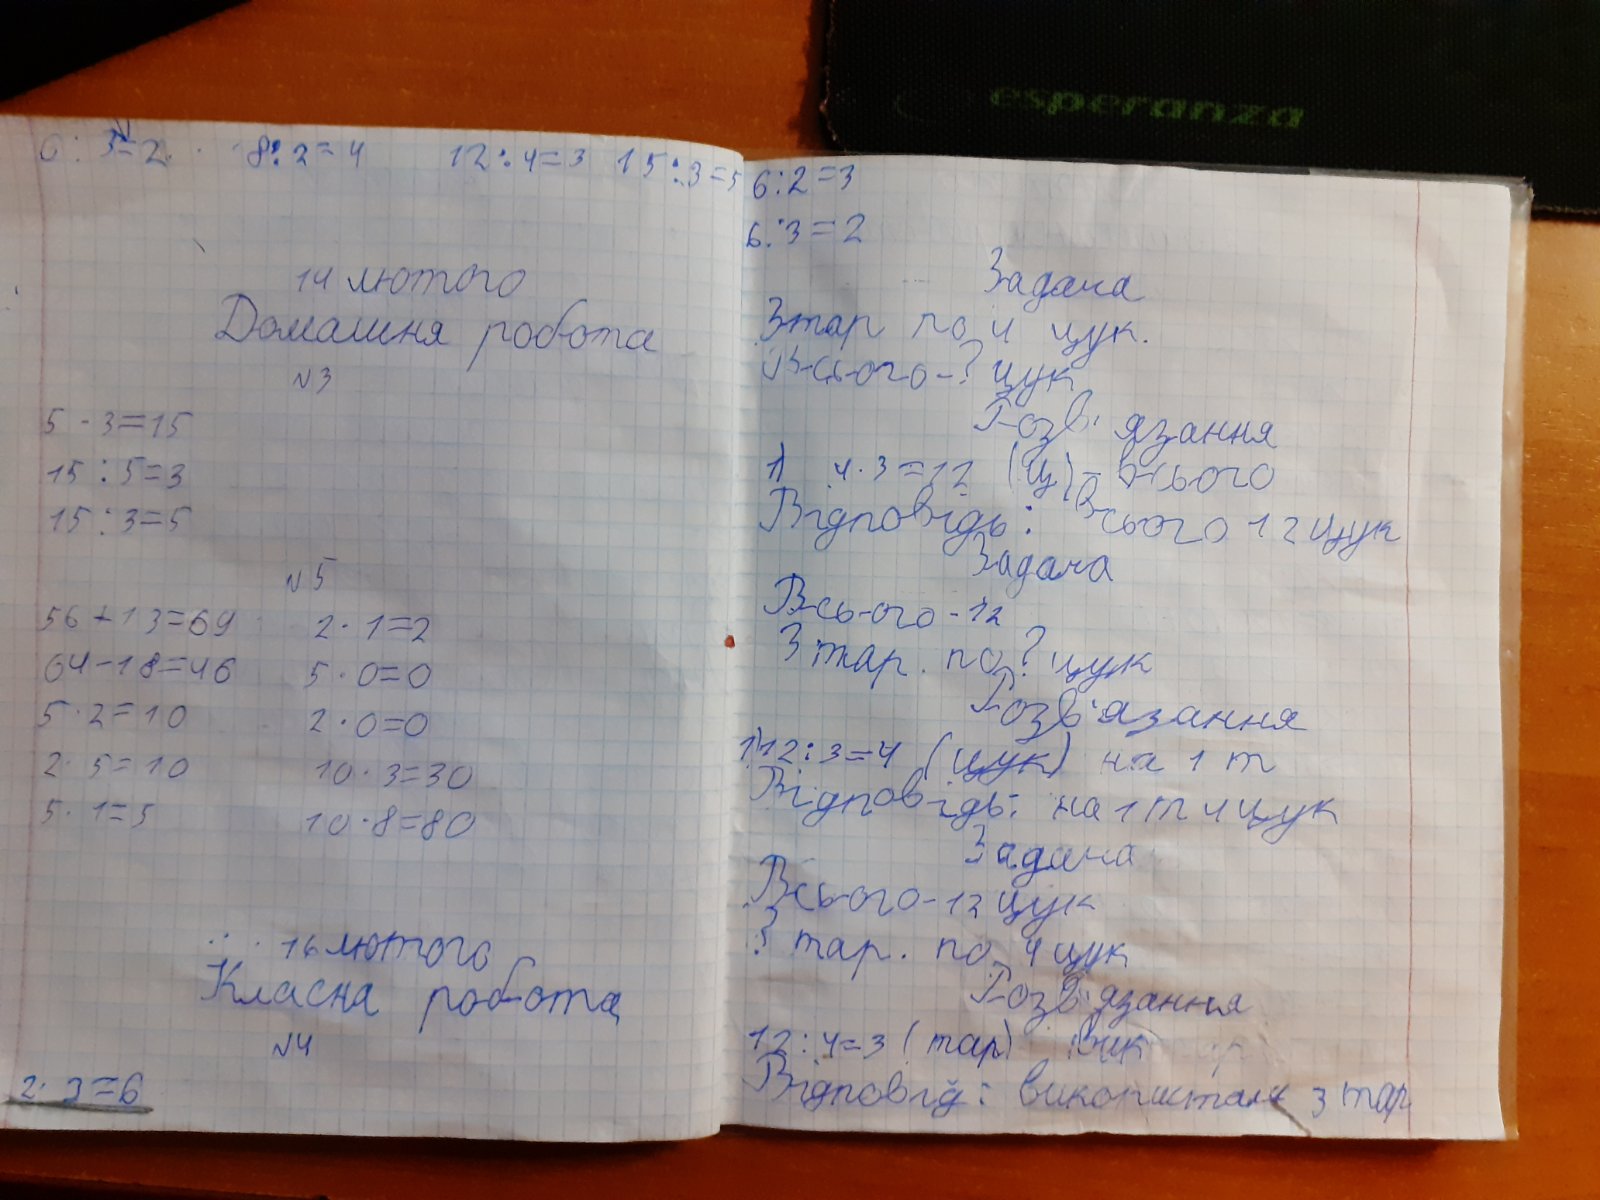 esperanza
6 : 3=2 8:2=4 12:4=3 15:3=5
14 лютого
Домашня робота
№3
5 · 3=15
15 : 5=3
15 : 3=5
№5
56+13=69 2·1=2
64-18=46 5·0=0
5·2=10 2·0=0
2·5=10 10·3=30
5·1=5 10·8=80
16 лютого
Класна робота
№4
2·3=6
6:2=3
6:3=2
Задача
3 тар по 4 цук.
Всього-? цук
Розв'язання
1) 4·3=12 (ц)-всього
Відповідь: Всього 12 цук
Задача
Всього-12
3 тар. по ? цук
Розв'язання
1)12:3=4 (цук) на 1 т
Відповідь: на 1 т 4 цук
Задача
Всього-12 цук
? тар. по 4 цук
Розв'язання
12:4=3 (тар) вик
Відповід: використали 3 тар